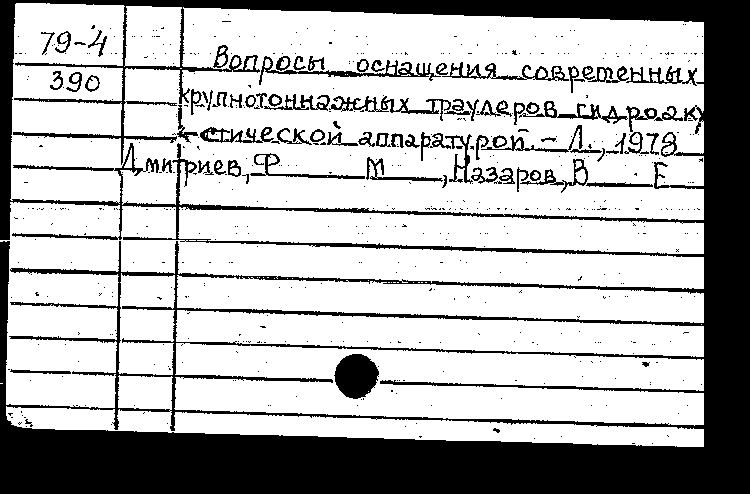 79-4
Вопросы оснащения современных
390
крупнотоннажных траулеров гидроаку
стической аппаратурой. – Л., 1978
Дмитриев, Ф М , Назаров, В Е